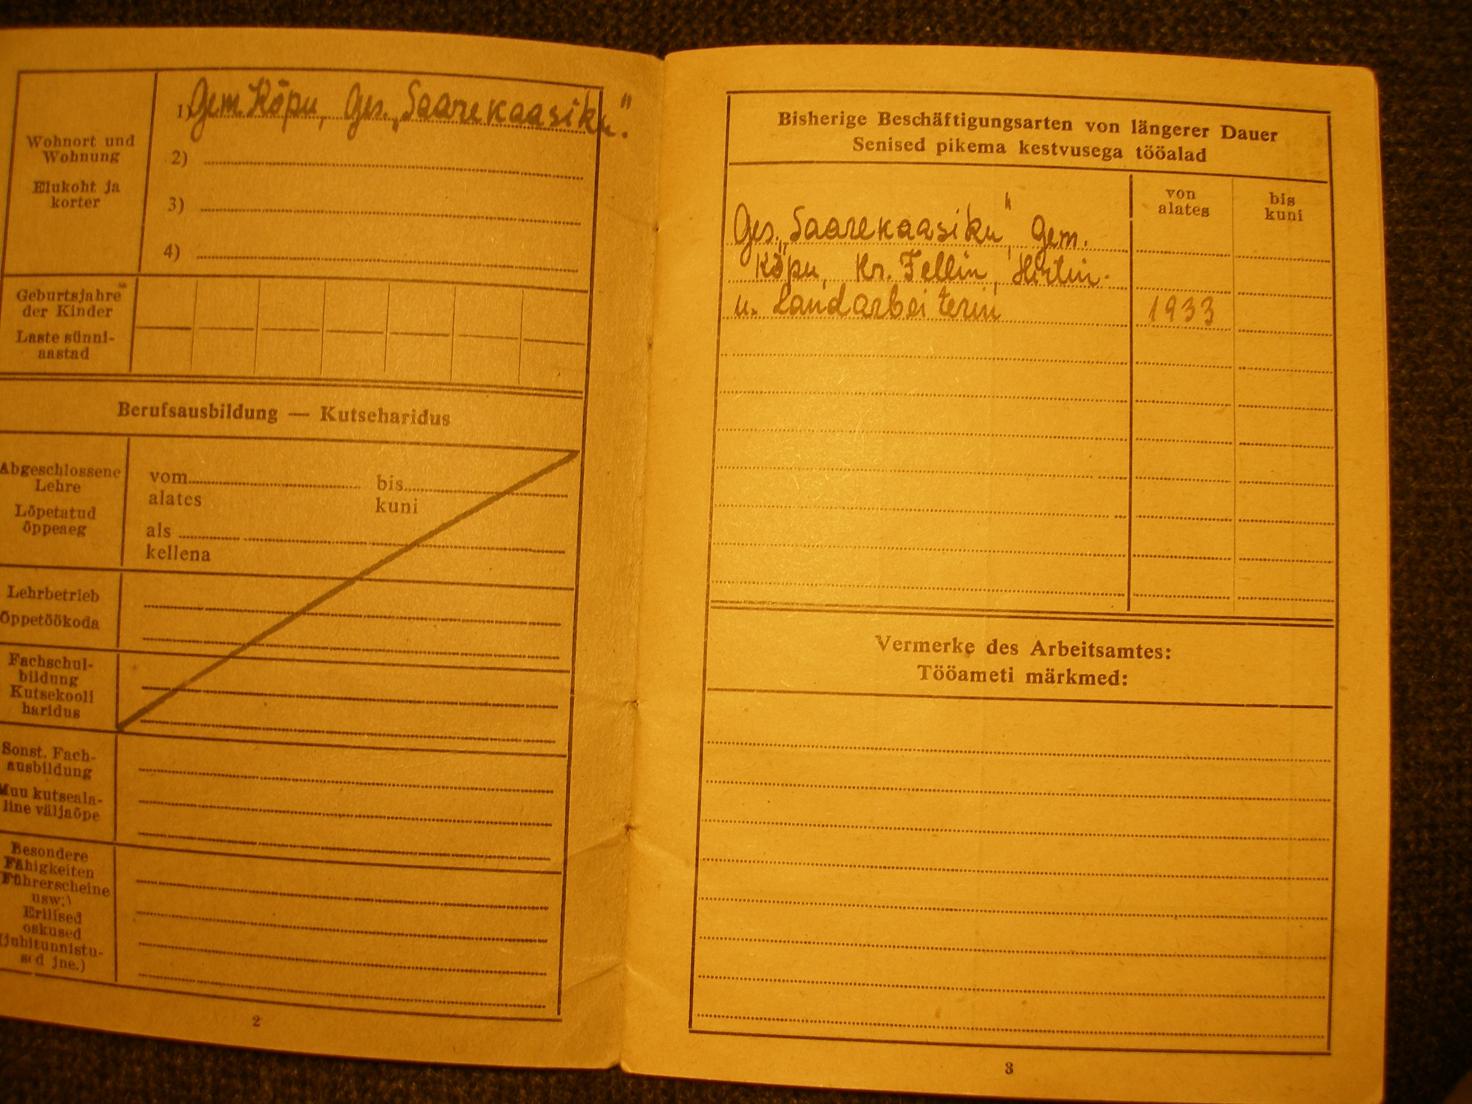 Wohnort und
Wohnung
Elukoht ja
korter
1) Gem. Kõpu, Ges. „Saarekaasiku".
2)
3)
4)
Geburtsjahre
der Kinder
Laste sünni-
aastad
Berufsausbildung — Kutseharidus
Abgeschlossene
Lehre
Lõpetatud
õppeaeg
vom bis
alates kuni
als
kellena
Lehrbetrieb
Õppetöökoda
Fachschul-
bildung
Kutsekooli
haridus
Sonst. Fach-
ausbildung
Muu kutseala-
line väljaõpe
Besondere
Fähigkeiten
Führerscheine
usw.)
Erilised
oskused
(juhitunnistu-
sed jne.)
2
Bisherige Beschäftigungsarten von längerer Dauer
Senised pikema kestvusega tööalad
von bis
alates kuni
Ges. „Saarekaasiku" Gem.
Kõpu, Kr. Fellin, Hirtin-
u. Landarbeiterin 1933
Vermerke des Arbeitsamtes:
Tööameti märkmed:
3